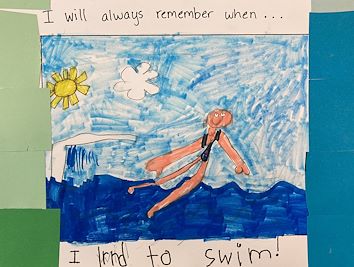 I will always remember when ...
I lrnd to swim!